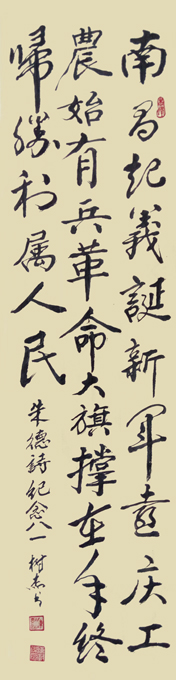 南昌起義誕新軍喜庆工
農始有兵革命大旗撑在手终
歸勝利属人民
朱德詩紀念八一